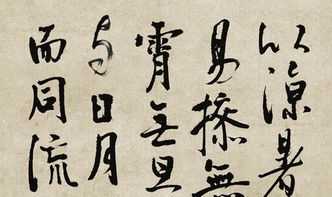 以涼暑
易操無
霄無旦
与日月
而同流